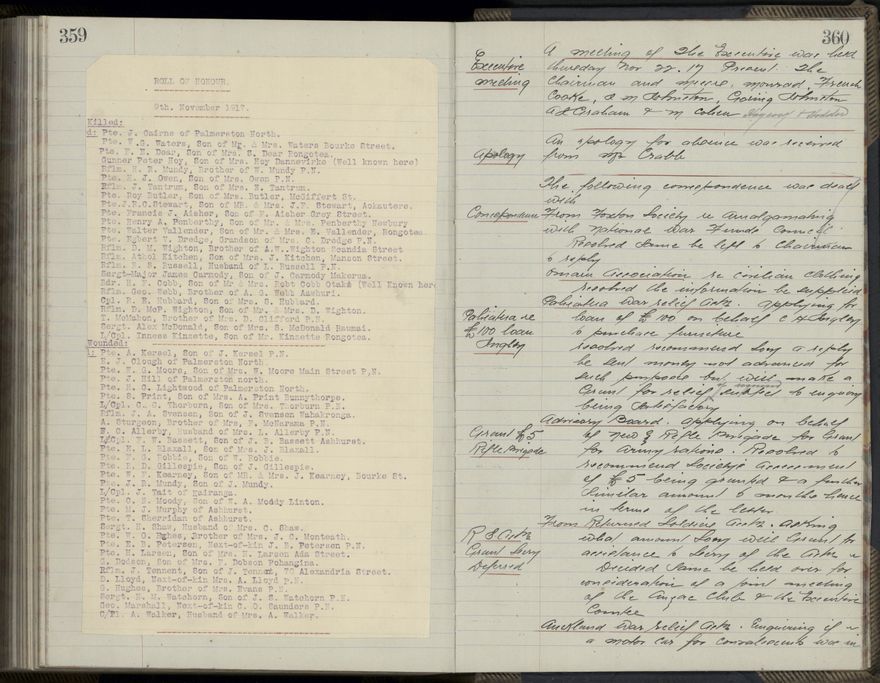 359
ROLL OF HONOUR.
9th. November 1917.
Killed:
d: Pte. J. Cairns of Palmerston North.
Pte. W.G. Waters, Son of Mr. & Mrs. Waters Bourke Street.
Pte. F. E. Doar, Son of Mrs. S. Dear Rongotea.
Gunner Peter Hoy, Son of Mrs. Hoy Dannevirke (Well known here)
Rflm. H. R. Mundy, Brother of W. Mundy P.N.
Pte. E. J. Owen, Son of Mrs. Owen P.N.
Rflm. J. Tantrum, Son of Mrs. E. Tantrum.
Pte. Roy Butler, Son of Mrs. Butler, McGiffert St.
Pte. J.R.C. Stewart, Son of MR. & Mrs. J.F. Stewart, Aokautere.
Pte. Francis J. Aisher, Son of F. Aisher Grey Street.
Pte. Henry A. Penberthy, Son of Mr. & Mrs. Penberthy Newbury
Pte. Walter Vallender, Son of Mr. & Mrs. E. Vallender, Rongotea.
Pte. Egbert V. Dredge, Grandson of Mrs. C. Dredge P.N.
Rflm. D. M. Wighton, Brother of A.W. Wighton Scandia Street
Rflm. Athol Kitchen, Son of Mrs. J. Kitchen, Manson Street.
Rflm. E. S. Russell, Husband of L. Russell P.N.
Sergt-Major James Carmody, Son of J. Carmody Makerua.
Bdr. H. E. Cobb, Son of Mr & Mrs. Robt Cobb Otaka (Well Known here
Rflm. Geo. Webb, Brother of A. G. Webb Awahuri.
Cpl. R. E. Hubbard, Son of Mrs. S. Hubbard.
Rflm. D. McP. Wighton, Son of Mr. & Mrs. D. Wighton.
T. McMahon, Brother of Mrs. D. Clifford P.N.
Sergt. Alex McDonald, Son of Mrs. S. McDonald Raumai.
L/Cpl. Inness Kinzette, Son of Mr. Kinzette Rongotea.
Wounded:
Pte. A. Kersel, Son of J. Kersel P.N.
R. J. Clough of Palmerston North
Pte. E. G. Moore, Son of Mrs. W. Moore Main Street P.N.
Pte. J. Hill of Palmerston north.
Pte. R. C. Lightwood of Palmerston North.
Pte. S. Print, Son of Mrs. A. Print Bunnythorpe.
L/Cpl. C. S. Thorburn, Son of Mrs. Thorburn P.N.
Rflm. J. A. Svensen, Son of J. Svensen Wahakronga.
A. Sturgeon, Brother of Mrs. E. McNarama P.N.
E. C. Allerby, Husband of Mrs. L. Allerby P.N.
L/Cpl. F. W. Bassett, Son of J. B. Bassett Ashhurst.
Pte. E. L. Blaxall, Son of Mrs. J. Blaxall.
Pte. D. Robbie, Son of W. Robbie.
Pte. R. D. Gillespie, Son of J. Gillespie.
Pte. W. F. Kearney, Son of MR. & Mrs. J. Kearney, Bourke St.
Pte. J. R. Mundy, Son of J. Mundy.
L/Cpl. J. Tait of Kairanga.
Pte. C. S. Moody, Son of E. A. Moody Linton.
Pte. M. J. Murphy of Ashhurst.
Pte. T. Sheridan of Ashhurst.
Sergt. H. Shaw, Husband of Mrs. C. Shaw.
Pte. W. O. Hghes, Brother of Mrs. J. C. Monteath.
Pte. E. B. Petersen, Next-of-kin J. E. Petersen P.N.
Pte. H. Larsen, Son of Mrs. H. Larsen Ada Street.
G. Dodson, Son of Mrs. F. Dobson Pohangina.
Rflm. J. Tennent, Son of J. Tennent, 70 Alexandria Street.
D. Lloyd, Next-of-kin Mrs. A. Lloyd P.N.
G. Hughes, Brother of Mrs. Evans P.N.
Sergt. H. M. Watchorn, Son of J. S. Watchorn P.N.
Geo. Marshall, Next-of-kin C. O. Saunders P.N.
C/Pl. A. Walker, Husband of Mrs. A. Walker.
360
Executive meeting
A meeting of the Executive was held
thursday Nov 22. 17 Present. The
Chairman and messrs, monrad, French
Cooke, J M Johnston, Goring Johnston
A L Graham & M Cohen
Apology
An apology for absence was received
from Mr Crabb
The following correspondence was dealt
with
Correspondence
From Foxton Society re Amalgamating
with National War Funds Council
Resolved same be left to Chairman
to reply
Association re civilian clothing
resolved the information be supplied
Pahiatua re £100 loan Tingley
Pahiatua War relief Assn. applying for
loan of £100 on behalf C H Tingley
to purchase furniture
resolved recommend Socy a reply
be sent money not advanced for
such purposes but will make a
Grant for relief subject to enquiry
being satisfactory
Grant £5 Rifle Brigade
Advisory Board. applying on behalf
of New Z Rifle Brigade for Grant
for Army rations. Resolved to
recommend Society's Assessment
of £5 being granted & a further
similar amount 6 months hence
in terms of the letter
R S Assn Grant Socy Deferred
From Returned Soldiers Assn. asking
what amount Socy will Grant for
assistance to Secry of the Assn
Decided same be held over for
consideration at a joint meeting
of the Anzac Club & the Executive
Comtee
Auckland War relief Assn. Enquiring if
a motor car for convalescents was in